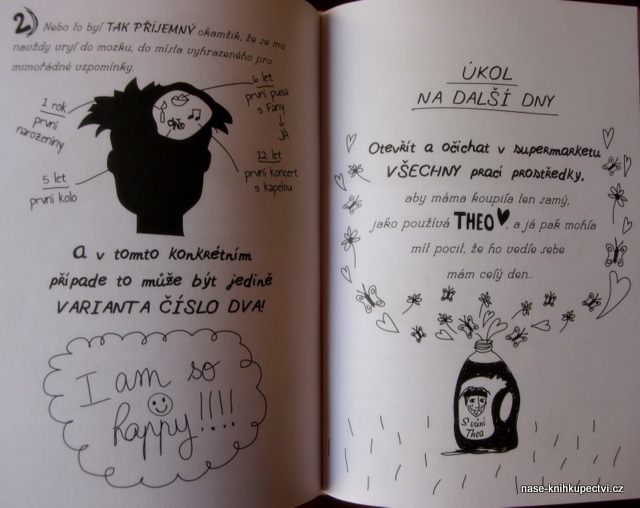 2) Nebo to byl TAK PŘÍJEMNÝ okamžik, že se mu
navždy vryl do mozku, do místa vyhrazeného pro
mimořádné vzpomínky.
1 rok
první
narozeniny
5 let
první kolo
6 let
první pusa
s Fany
já
12 let
první koncert
s kapelou
a v tomto konkrétním
případe to může být jedině
VARIANTA ČÍSLO DVA!
I am so
happy!!!!
ÚKOL
NA DALŠÍ DNY
Otevřít a očichat v supermarketu
VŠECHNY prací prostředky,
aby máma koupila ten samý,
jako používá THEO♥, a já pak mohla
mít pocit, že ho vedle sebe
mám celý den..
S vůní
Thea
nase-knihkupectvi.cz